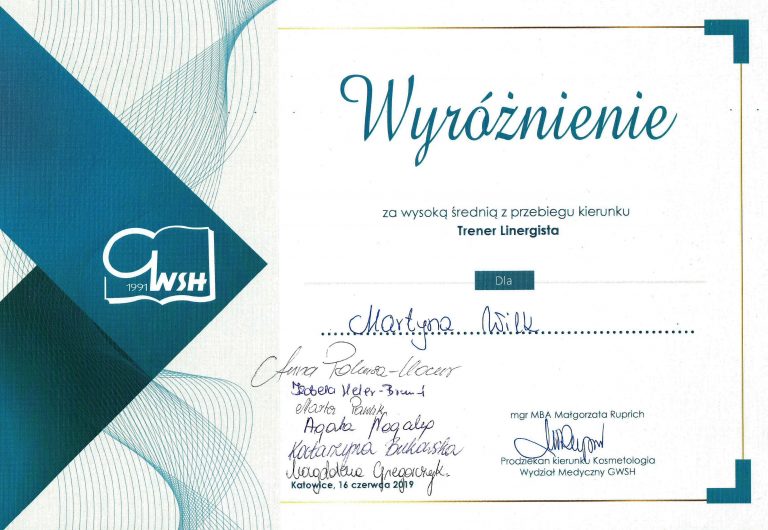 Wyróżnienie
za wysoką średnią z przebiegu kierunku
Trener Linergista
GWSH
1991
Dla
Martyna Wilk
Anna
Izabela
Marta Pawlik
Agata Nogalip
Katarzyna Bukowska
Magdalena Gregorczyk.
Katowice, 16 czerwca 2019
mgr MBA Małgorzata Ruprich
Prodziekan kierunku Kosmetologia
Wydział Medyczny GWSH